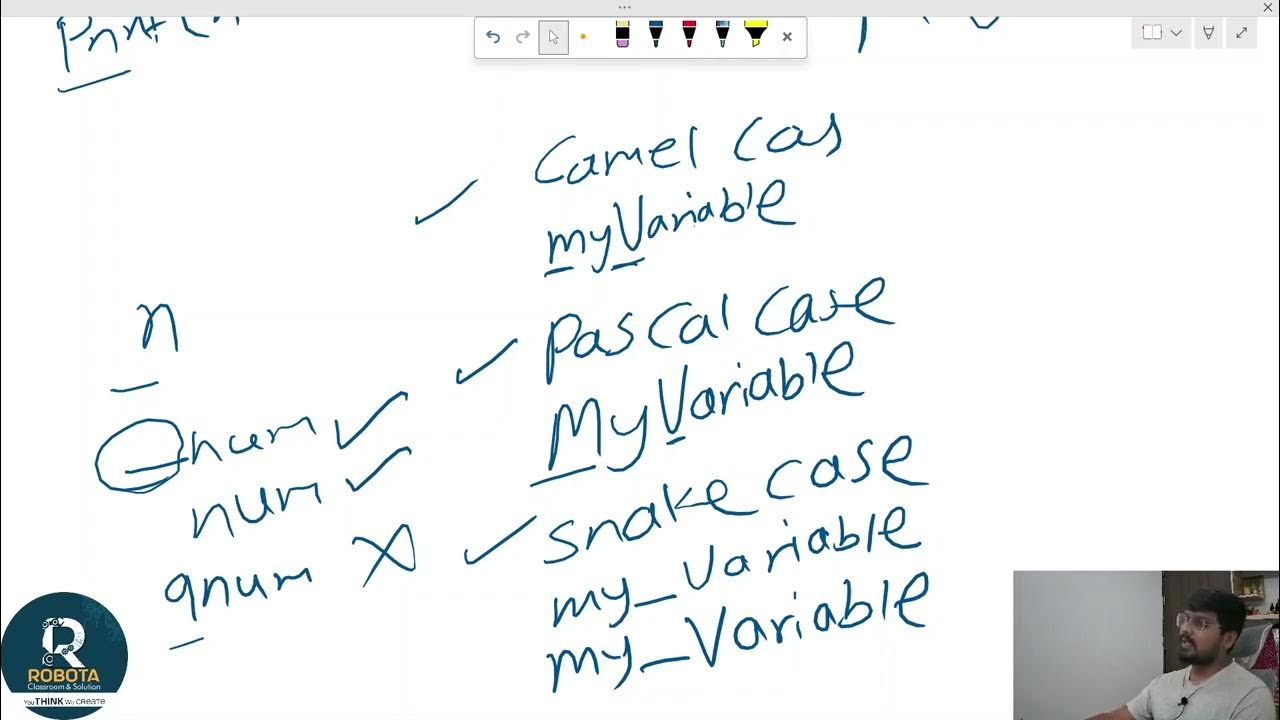 Camel Cas
myVariable
Pascal Case
MyVariable
Snake case
my_variable
my_Variable
n
_num
num
9num
ROBOTA
Classroom & Solution
You THINK We CREATE